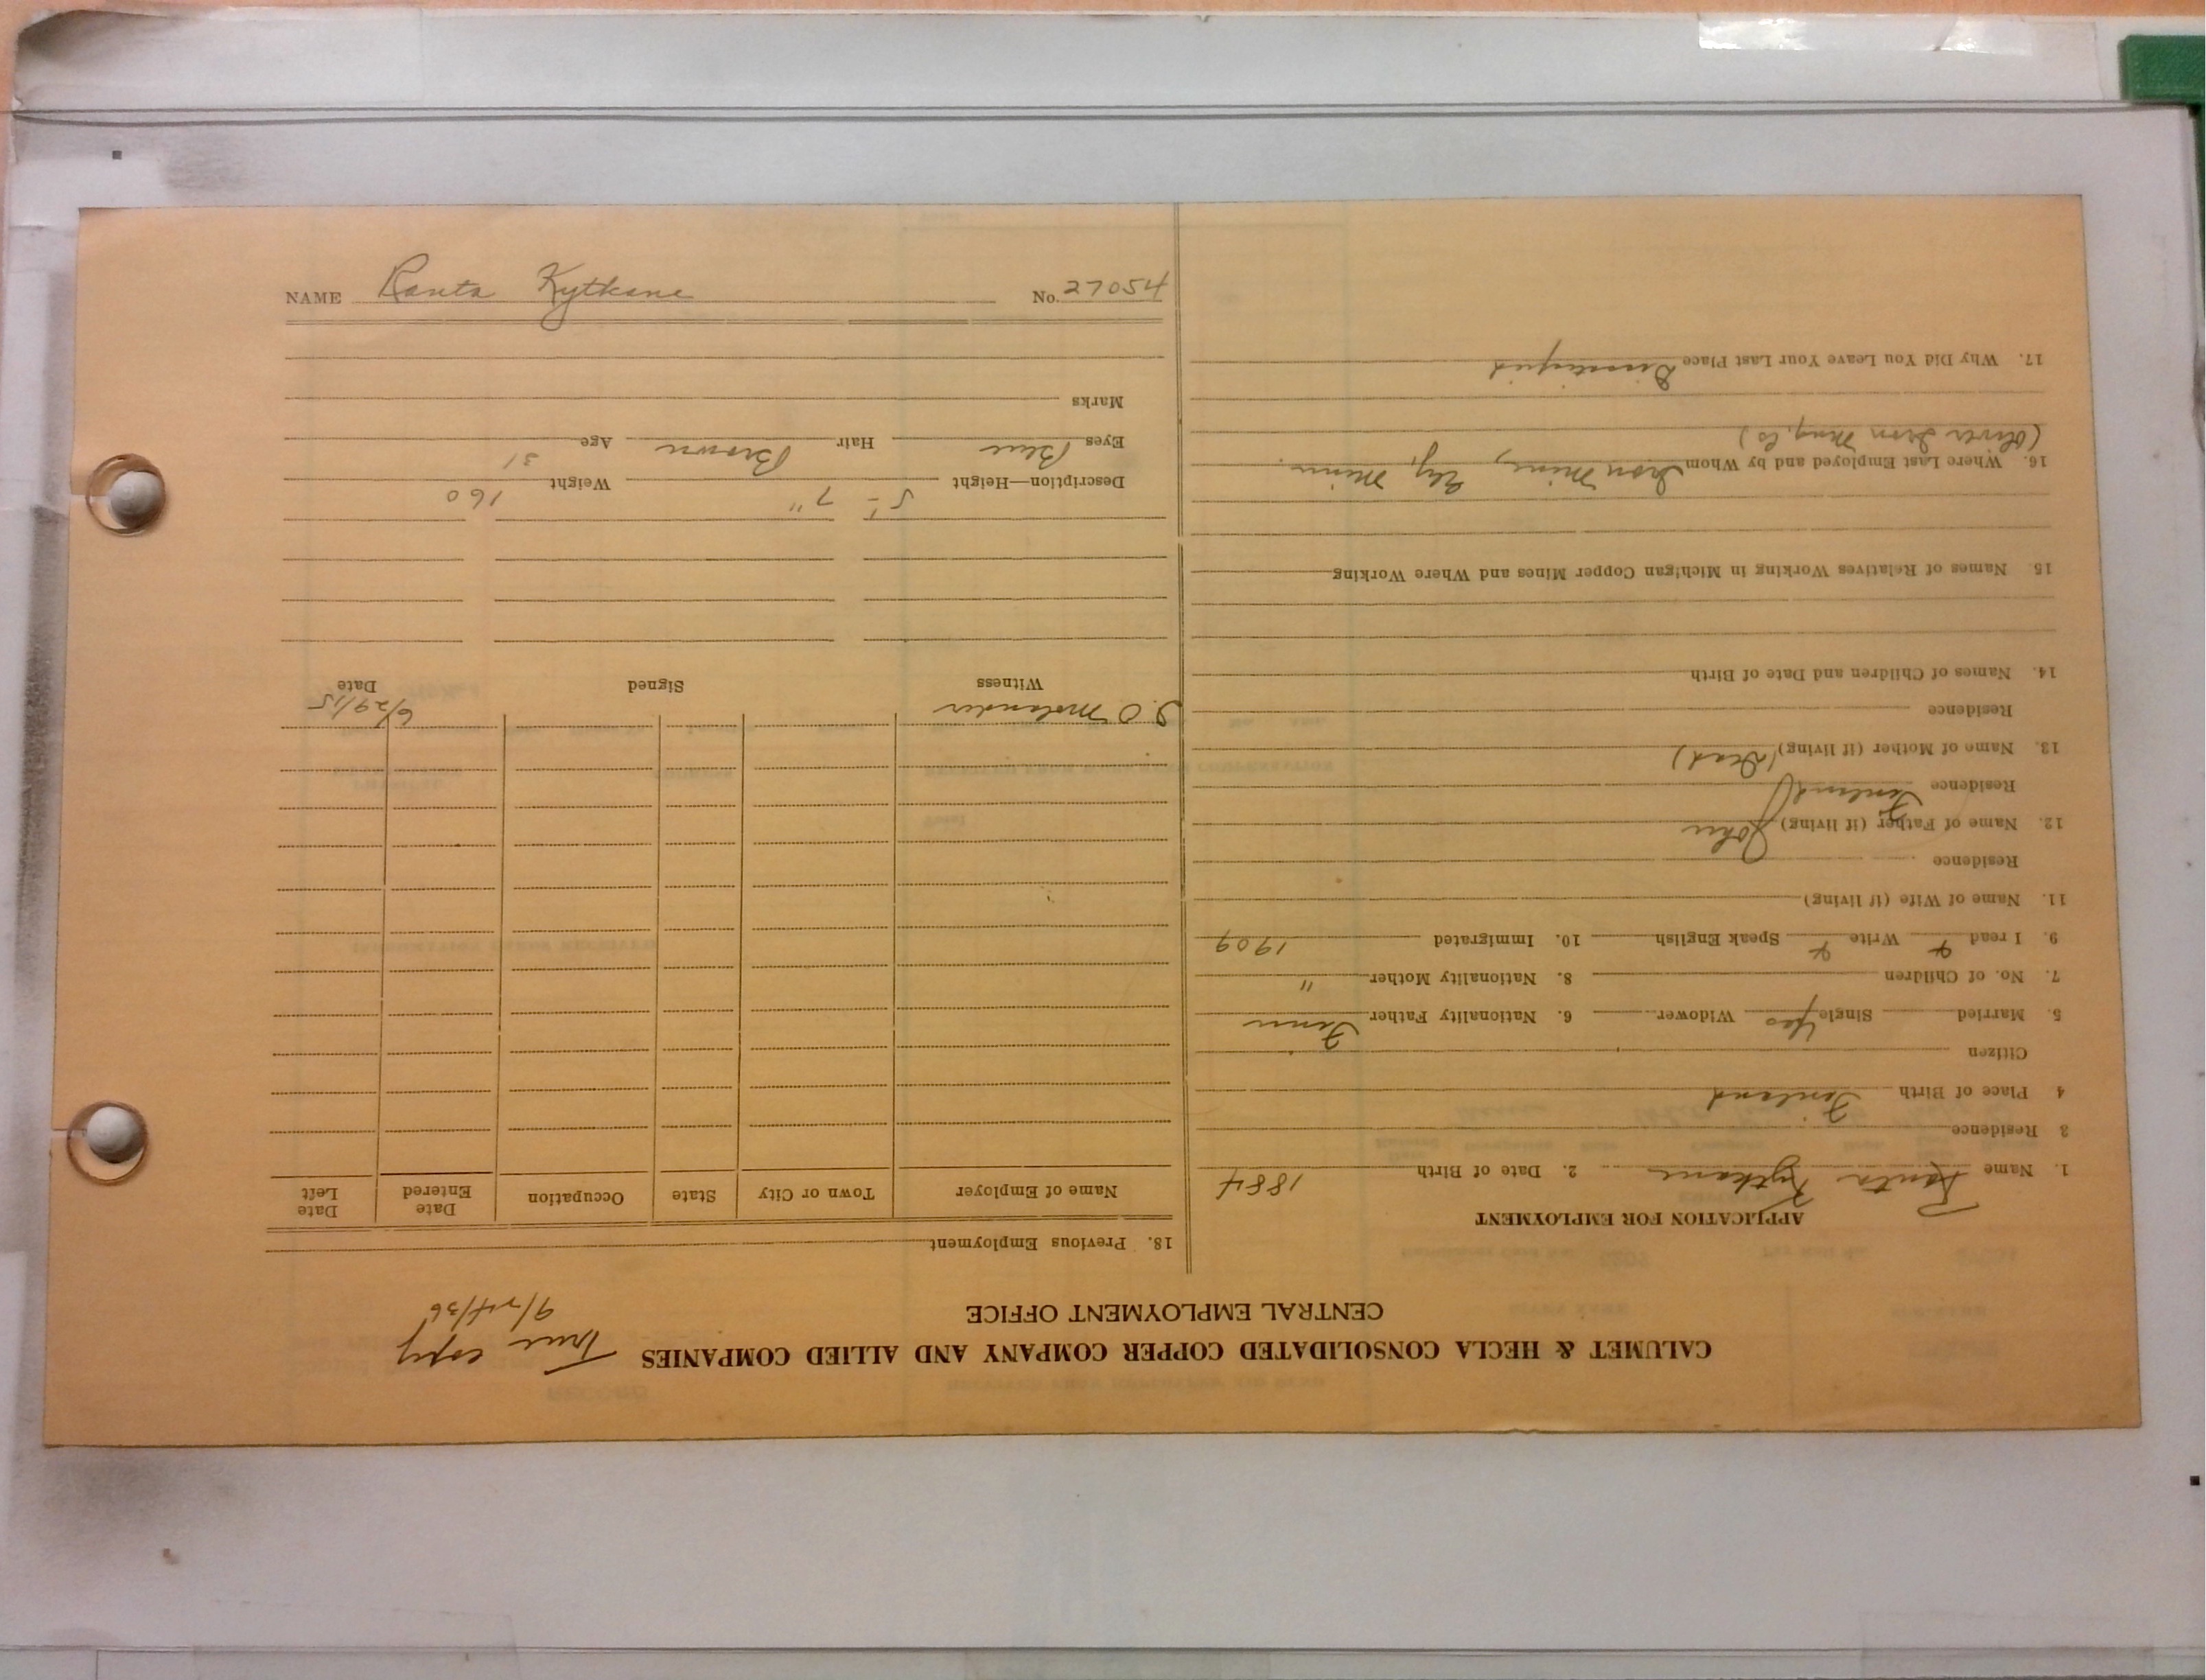 CALUMET & HECLA CONSOLIDATED COPPER COMPANY AND ALLIED COMPANIES
True copy
9/24/36
CENTRAL EMPLOYMENT OFFICE
APPLICATION FOR EMPLOYMENT
1. Name Ranta Kytkane 2. Date of Birth 1884
3 Residence
4 Place of Birth Finland
Citizen
5. Married Single Yes Widower 6. Nationality Father Finn
7. No. of Children 8. Nationality Mother "
9. I read Write Speak English 10. Immigrated 1909
11. Name of Wife (if living)
Residence
12. Name of Father (if living) John
Residence Finland
13. Name of Mother (if living) (Dead)
Residence
14. Names of Children and Date of Birth
15. Names of Relatives Working in Michigan Copper Mines and Where Working
16. Where Last Employed and by Whom Iron Mine, Ely, Minn.
(Oliver Iron Mng. Co)
17. Why Did You Leave Your Last Place
18. Previous Employment
Name of Employer Town or City State Occupation Date Entered Date Left
S.O Molander 6/29/15
Witness Signed Date
Description—Height 5' 7" Weight 160
Eyes Blue Hair Brown Age 31
Marks
NAME Ranta Kytkane No. 27054